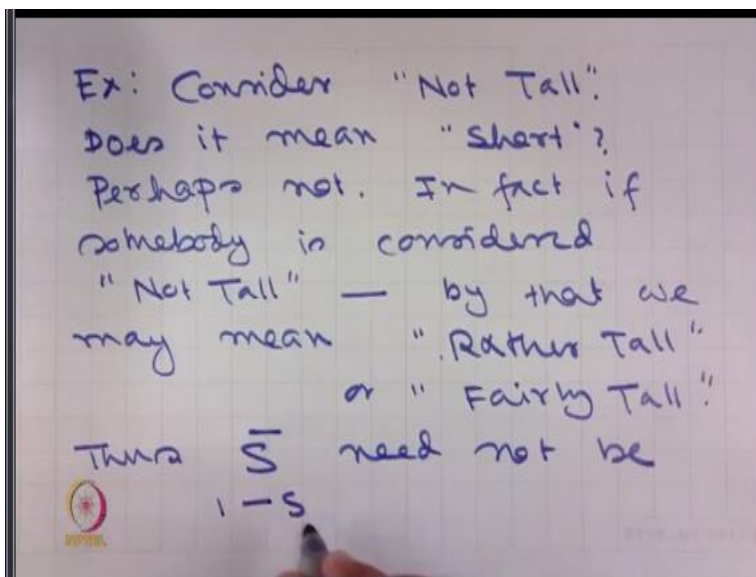 Ex: Consider "Not Tall".
Does it mean "Short"?
Perhaps not. In fact if
somebody is considered
"Not Tall" — by that we
may mean "Rather Tall"
or "Fairly Tall".
Thus S̄ need not be
1 - S
NPTEL